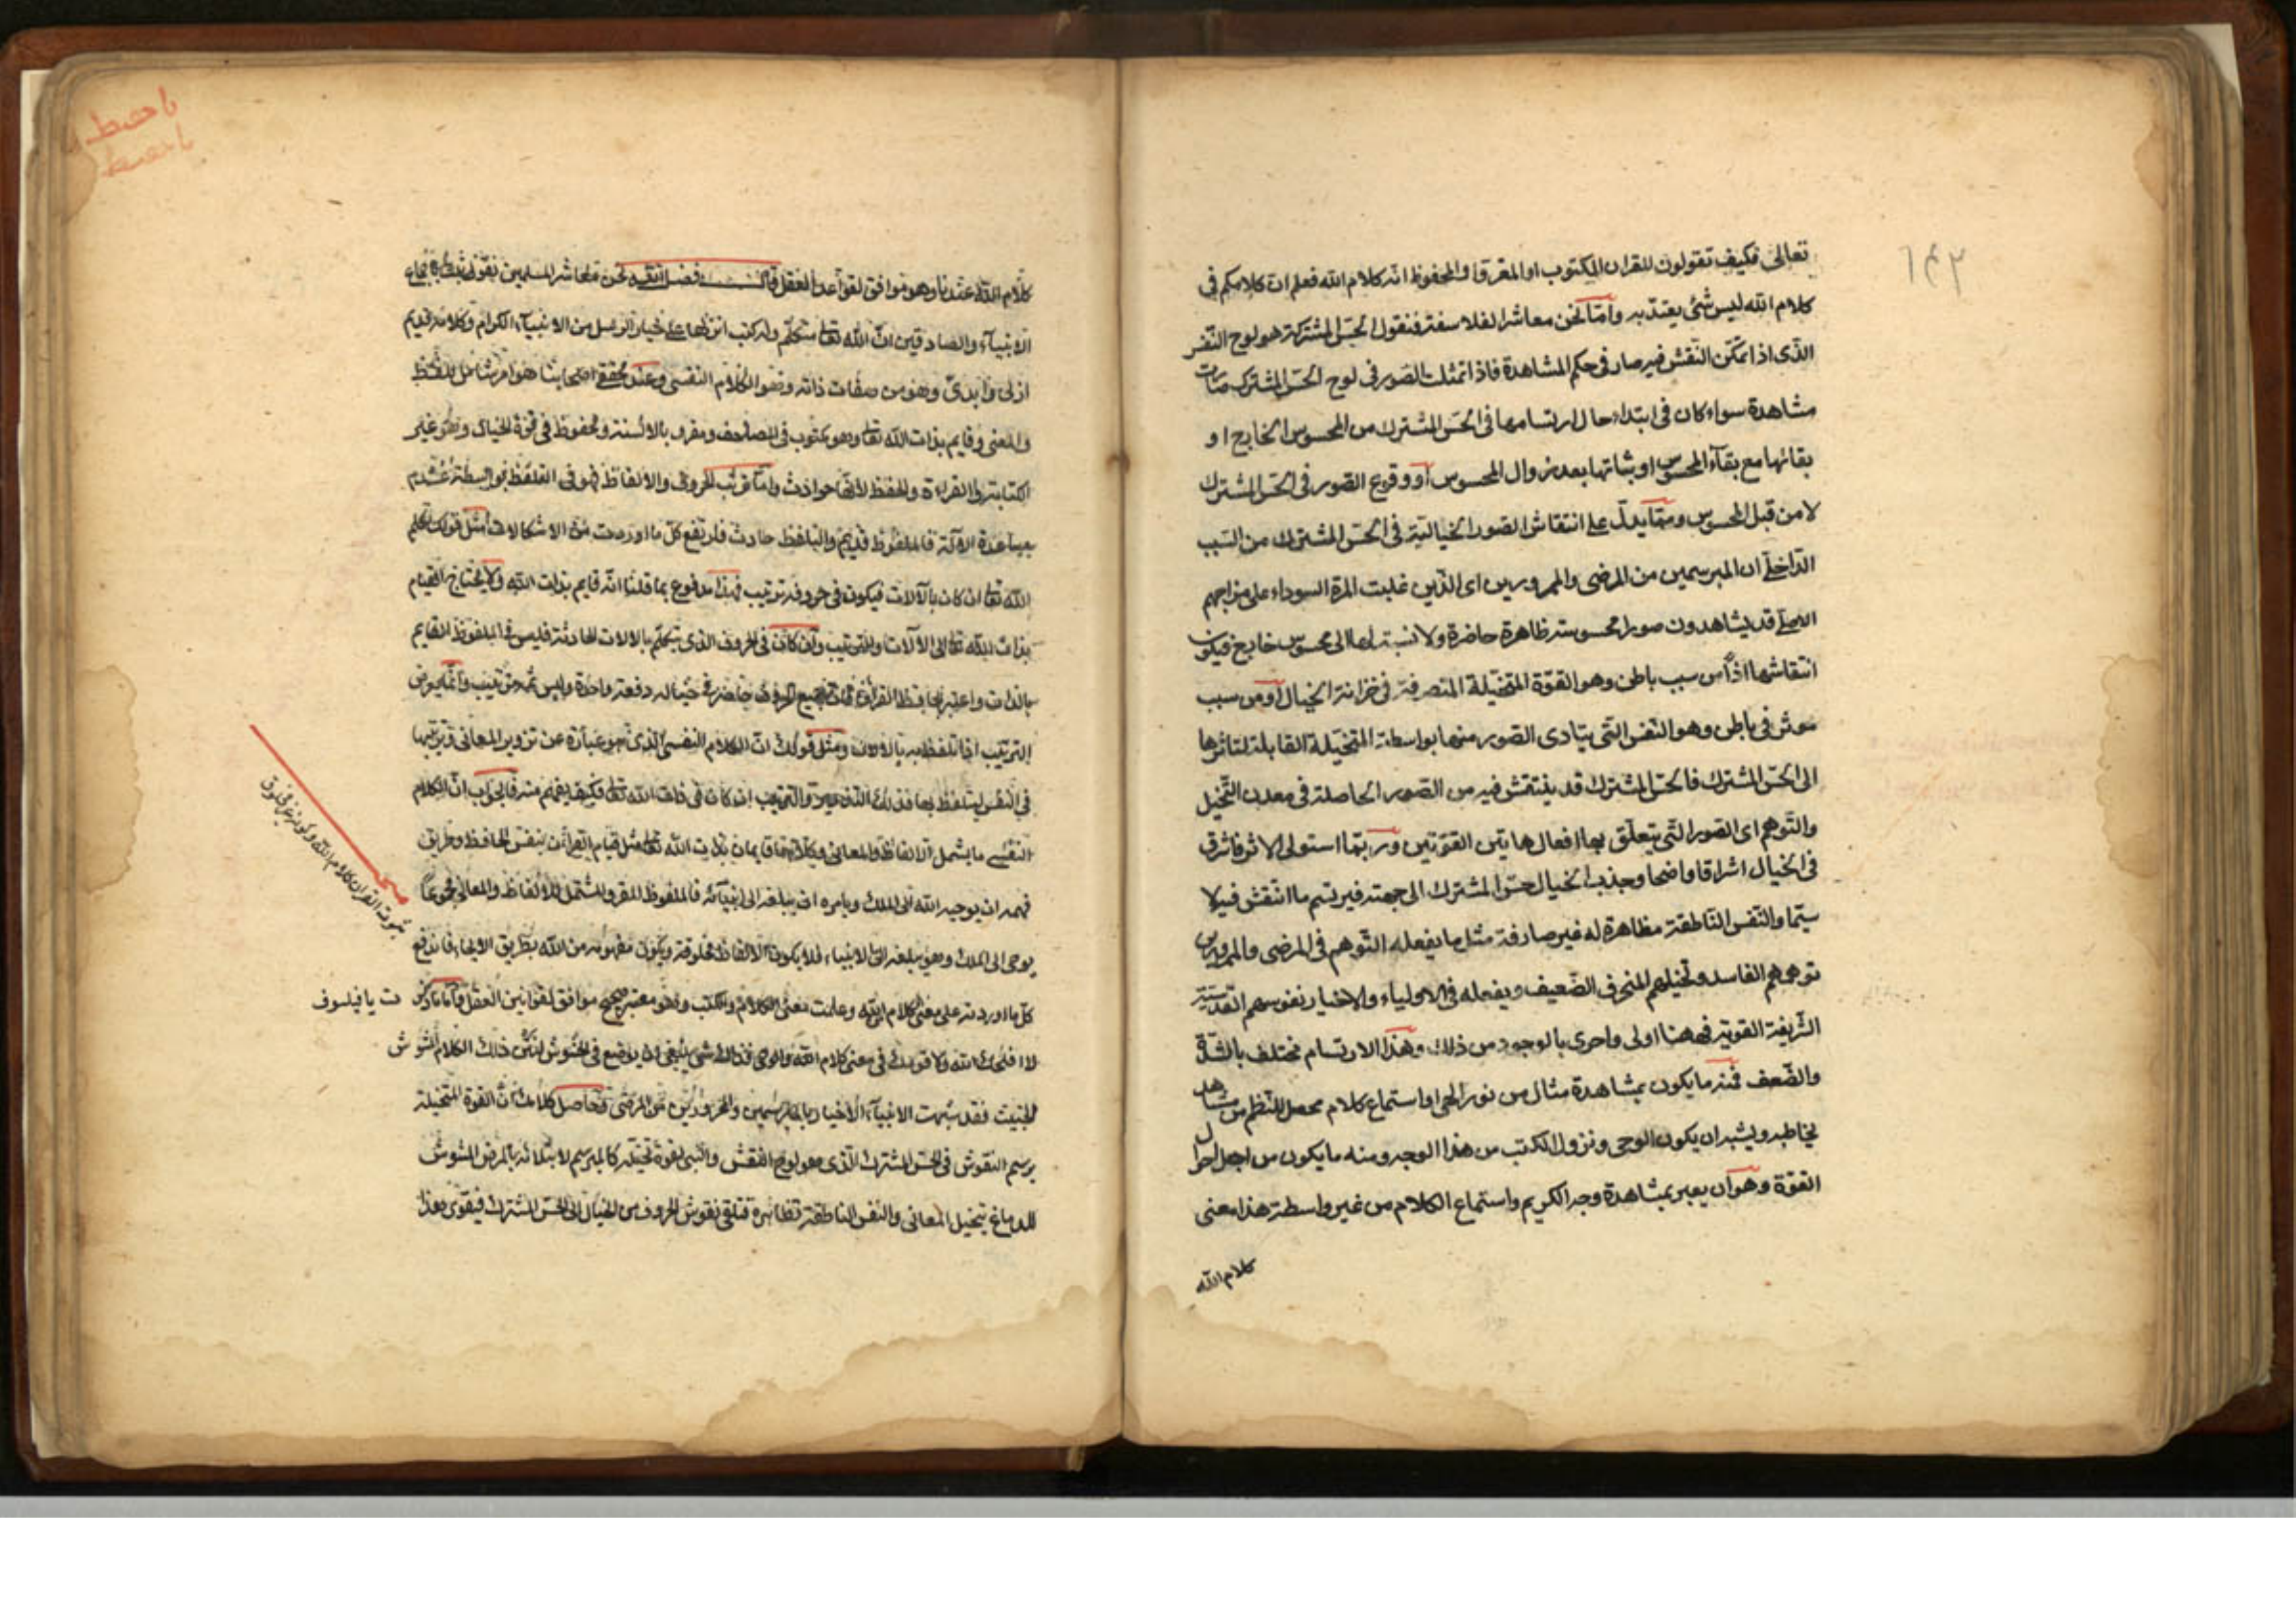 ١٤٣
تعالى فكيف تقولون للقران المكتوب او المقرو او المحفوظ انه كلام الله فعلم ان كلامكم في
كلام الله ليس شئ يعتد به وامّا نحن معاشر الفلاسفة فنقول الحسّ المشترك هو لوح النقش
الذى اذا تمكّن النقش فيه صار فى حكم المشاهدة فاذا تمثلت الصور فى لوح الحسّ المشترك صارت
مشاهدة سواء كان فى ابتداء حال ارتسامها فى الحسّ المشترك من المحسوس الخارج او
بقائها مع بقآء المحسوس او ثباتها بعد زوال المحسوس او وقوع الصور فى الحسّ المشترك
لا من قبل المحسوس وممّا يدلّ على انتقاش الصور الخياليّة فى الحسّ المشترك من السّبب
الدّاخلىّ ان المبرسمين من المرضى والممرورين اى الذّين غلبت المرة السوداء على مزاجهم
الاصلىّ قد يشاهدون صورا محسوسة ظاهرة حاضرة ولا نسبة لها الى محسوس خارج فيكون
انتقاشها اذاً من سبب باطن وهو القوّة المتخيّلة المتصرفة فى خزانة الخيال او من سبب
موثر فى باطن وهو النّفس التّى يتادى الصّور منها بواسطة المتخيّلة القابلة لتاثرها
الى الحسّ المشترك فالحسّ المشترك قد ينتقش فيه من الصّور الحاصلة فى معدن التّخيل
والتّوهم اى الصّور التّى يتعلّق بها افعال هاتين القوّتين وربّما استولى الاثر فاشرق
فى الخيال اشراقا واضحا وجذب الخيال حسّ المشترك الى جهته فيرتسم ما انتقش فيه لا
سيّما والنّفس النّاطقة مظاهرة له غير صارفة مثل ما يفعله التّوهم فى المرضى والممرورين
توهمهم الفاسد وتخيلهم المنحرف الضّعيف ويفعله فى الاولياء والاخيار نفوسهم القدسيّة
الشّريفة القوية فههنا اولى واحرى بالوجود من ذلك وهذا الارتسام مختلف بالشّدّة
والضّعف فمنه ما يكون بمشاهدة مثال من نور الحق او استماع كلام محصل النّظم من مشاهد
يخاطبه ويشبه ان يكون الوحى ونزول الكتب من هذا الوجه ومنه ما يكون من اجل احوال
القوّة وهو ان يعبر بمشاهدة وجه الكريم واستماع الكلام من غير واسطة هذا معنى
كلام الله
كلام الله عندنا وهو موافق لقواعد العقل قالت نحن معاشر المسلمين نقول ثبت باجماع
الانبيآء والصادقين انّ الله تعا متكلّم وله كتب انزلها على خيار الرسل من الانبيآء الكرام وكلامه قديم
ازلى وابدىّ وهو من صفات ذاته وهو الكلام النفسى وعند محققى اصحابنا هو امر شامل للّفظ
والمعنى وقايم بذات الله تعا وهو مكتوب فى المصاحف ومقرو بالالسنة ومحفوظ فى قوة الخيال وهو غير
الكتابة والقراءة والحفظ لانّها حوادث وامّا ترتّب الحروف والالفاظ فهو فى التلفّظ بواسطة عدم
مساعدة الآلة فالملفوظ قديم والتلفظ حادث فارتفع كلّ ما اوردت من الاشكالات مثل قولك تكلم
الله تعا ان كان بالآلات فيكون فى حروفه ترتيب فهذا مدفوع بما قلنا انّه قايم بذات الله ولا يحتاج القيام
بذات الله تعا الى الآلات والترتيب وان كان فى الحروف الذى يتكلّم بالالات الحادثة فليس فى الملفوظ القايم
بالذات واعتبر بحافظ القران فان جميع الحروف حاضر فى خياله دفعة واحدة وليس ثمه ترتيب وانّما يعرض
الترتيب اذا تلفّظ به بالالات ومثل قولك انّ الكلام النفسى الذى هو عبارة عن تزوير المعانى وترتيبها
فى النفس ليتلفظ بها فذلك التزوير والترتيب ان كان فى ذات الله تعا فكيف يفهم منه فالجواب انّ الكلام
النفسى ما يشمل الالفاظ والمعانى وكلاهما قايمان بذات الله تعا مثل قيام القران بنفس الحافظ وطريق
فهمه ان يوحيه الله الى الملك ويامره ان يبلغه الى انبيآئه فالملفوظ المقرو المشتمل للالفاظ والمعانى مجموعاً
يوحى الى الملك وهو يبلغه الى الانبياء فلا يكون الالفاظ مخلوقة ويكون مفهومه من الله بطريق الايحاء فاندفع
كلّ ما اوردته على معنى كلام الله وعلمت معنى الكلام والكتب وهو معتبر صحيح موافق لقوانين العقل وامّا ما ذكرت يا فيلسوف
لا افلحك الله ولا قولك فى معنى كلام الله والوحى فذلك شئ ينبغى ان يوضع فى الحشوش ذلك الكلام المشوش
الخبيث فقد شبهت الانبيآء الاخيار بالمبرسمين والممرورين من المرضى وحاصل كلامك ان القوة المتخيلة
يرسم النقوش فى الحسّ المشترك الذى هو لوح النقش والنبى لقوة تخيله كالمبرسم لابتلائه بالمرض المشوش
للدماغ يتخيل المعانى والنفس الناطقة تظاهره فتلقى نقوش الحروف من الخيال الى الحسّ المشترك فيقوى هذا
ثبوت القران كلام الله وكونه غير مخلوق